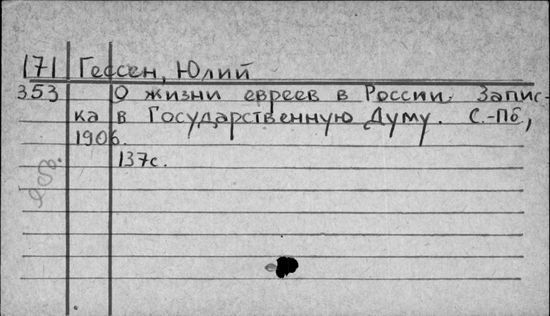 171 Гессен, Юлий
353 О жизни евреев в России. Запис-
ка в Государственную Думу. С.-Пб,
1906.
137с.